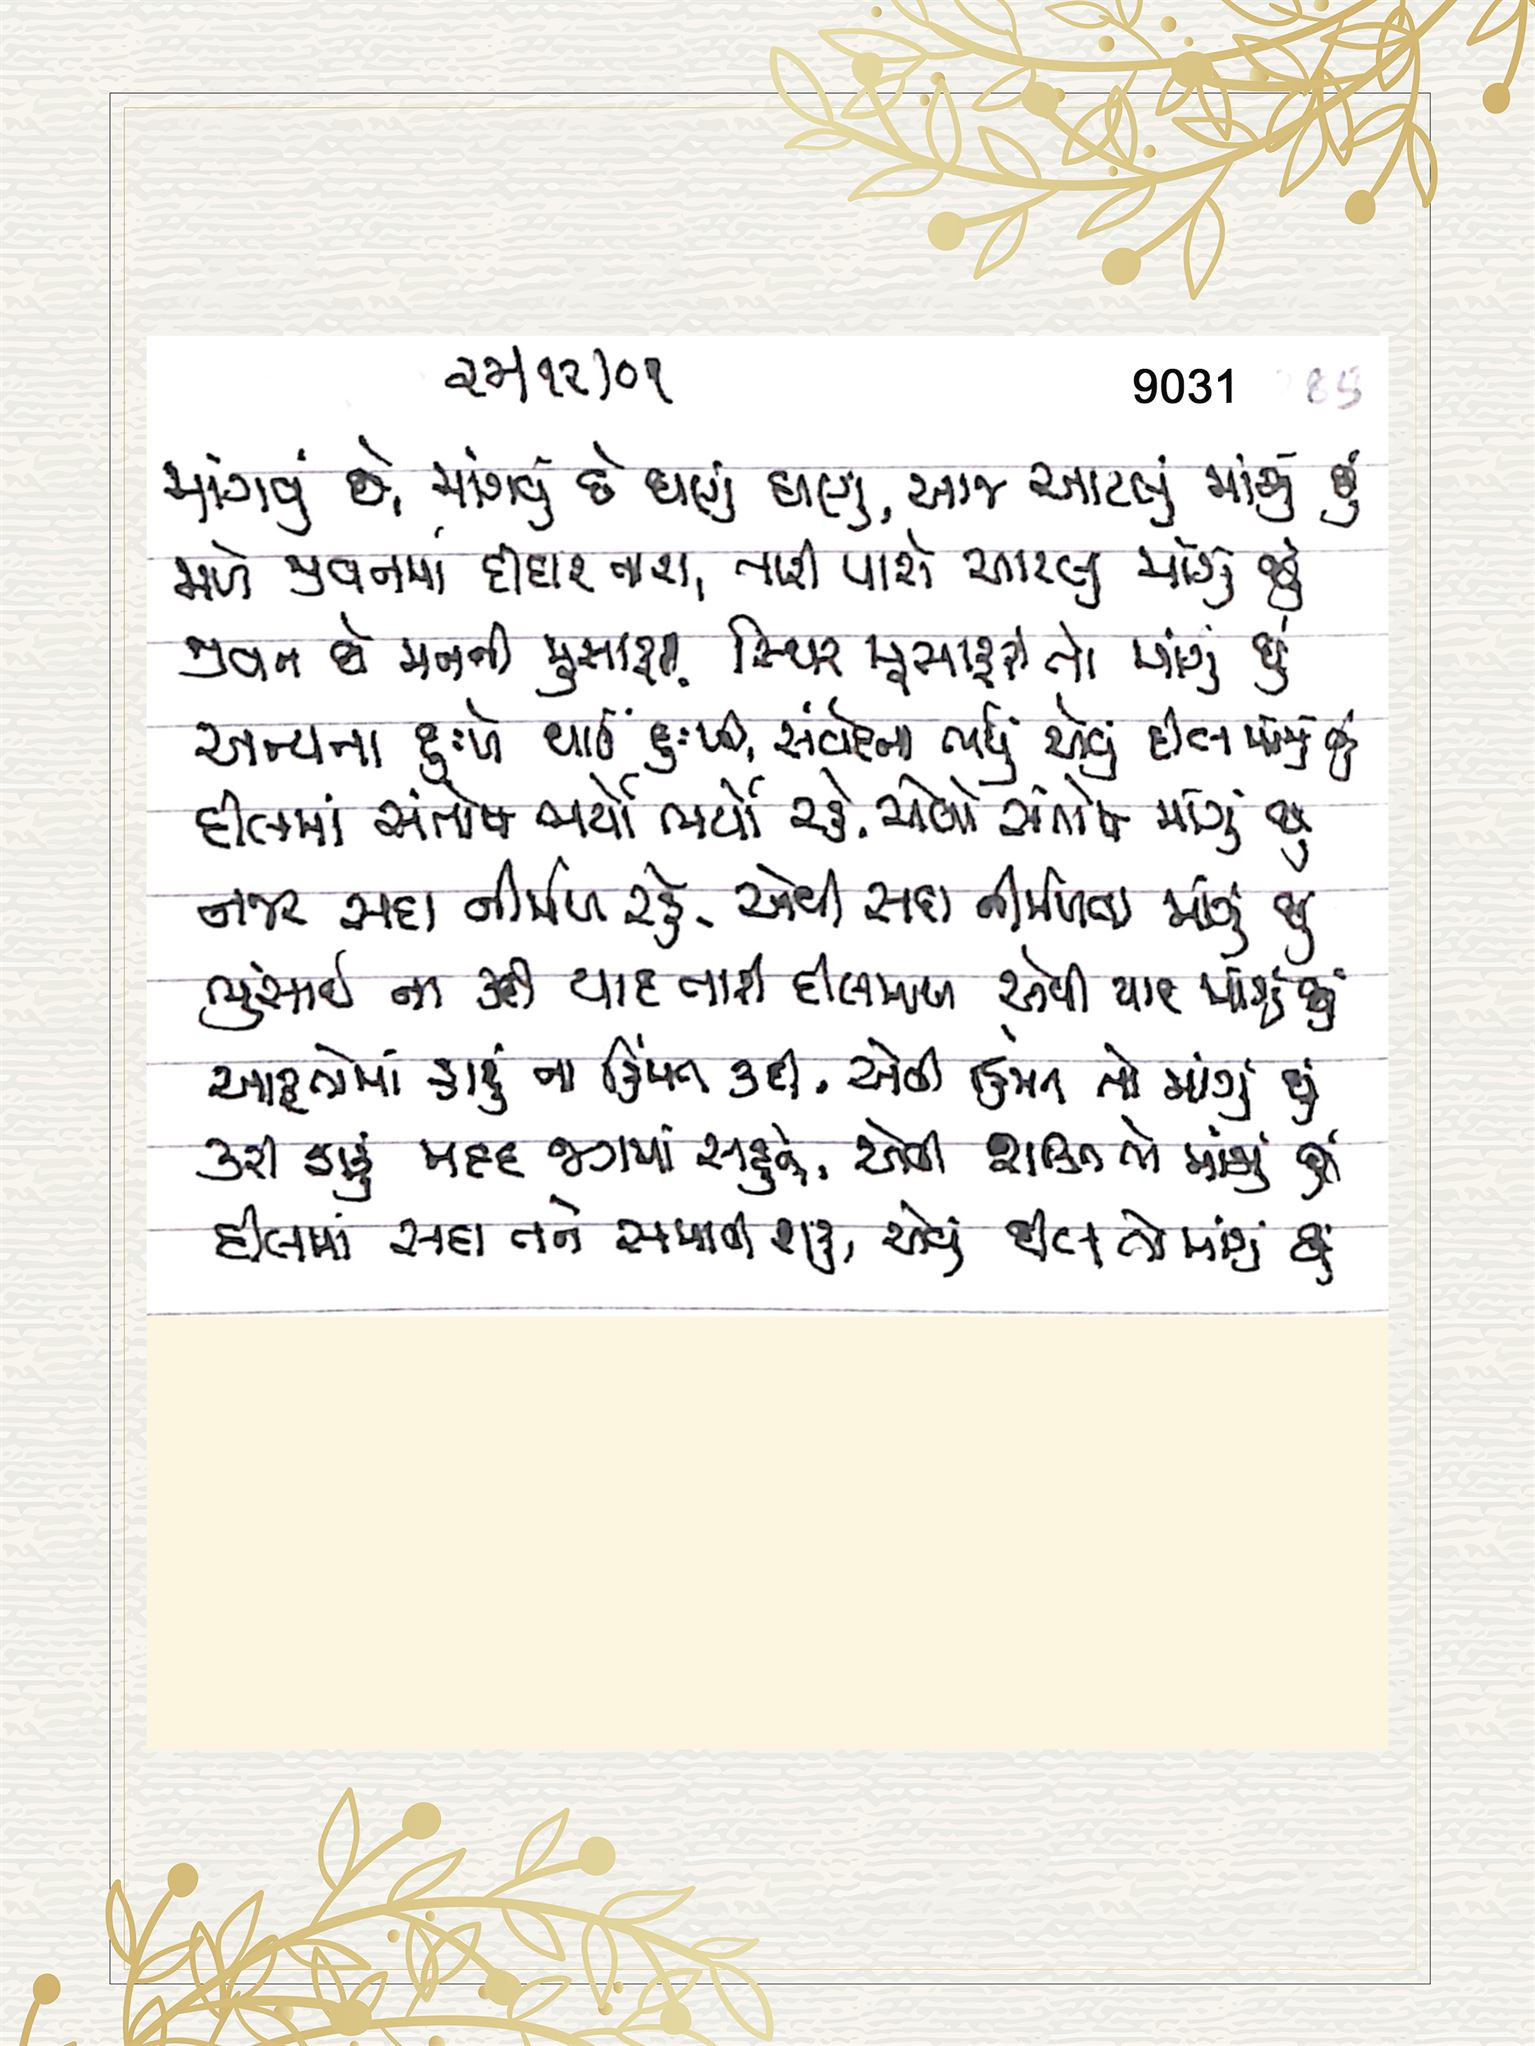 ૨૫/૧૨/૦૧
9031
માંગવું છે, માંગવું છે ઘણું ઘણું, આજ આટલું માંગું છું
મળે જીવનમાં દીદાર તારા, તારી પાસે આટલું માંગું છું
જીવન છે મનની મુસાફરી, સ્થિર મુસાફરી તો માંગું છું
અન્યના દુઃખે થાઉં દુઃખી, સંવેદના ભર્યું એવું દીલ માંગું છું
દીલમાં સંતોષ ભર્યો ભર્યો રહે, એવો સંતોષ માંગું છું
નજર સદા નીર્મળ રહે, એવી સદા નીર્મળતા માંગું છું
ભુંસાઈ ના કદી યાદ તારી દીલમાંથી એવી યાદ માંગું છું
આફતોમાં હારું ના હિંમત કદી, એવી હિંમત તો માંગું છું
કરી શકું મદદ જગમાં સહુને, એવી શક્તિ તો માંગું છું
દીલમાં સદા તને સમાવી શકું, એવું દીલ તો માંગું છું